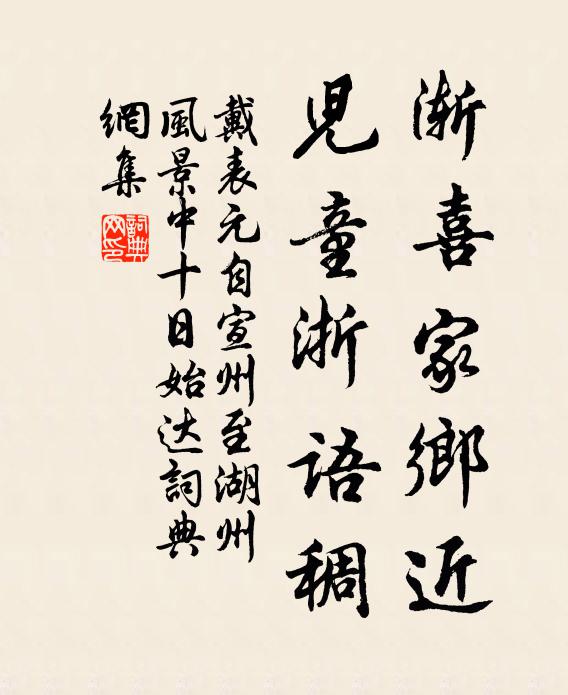 漸喜家鄉近
兒童浙語稠
戴表元自宣州至湖州
風景中十日始达詞典
網集
詞典
网印